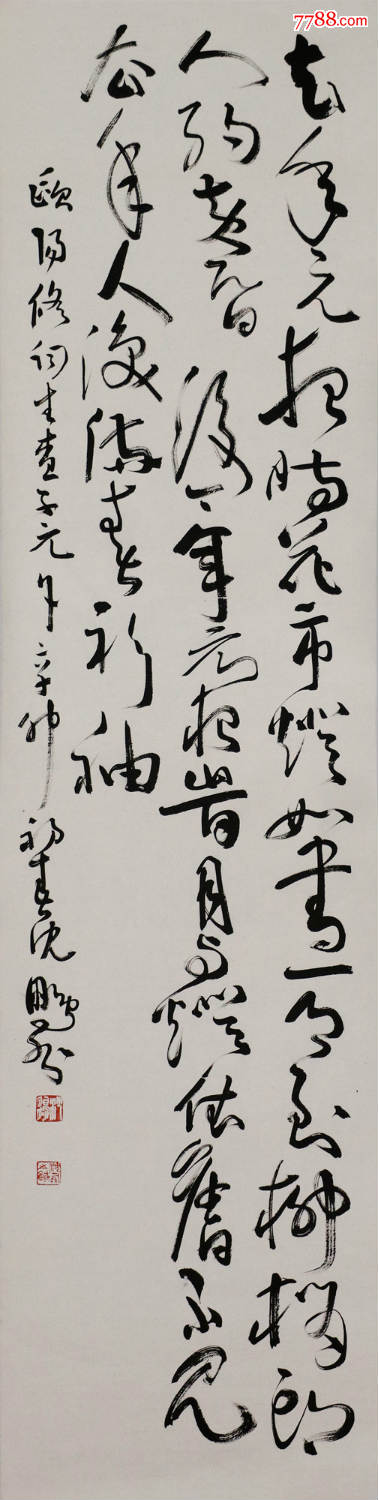 去年元夜時花市燈如晝月到柳梢頭
人約黃昏後今年元夜時月與燈依舊不見
去年人淚滿春衫袖
歐陽修詞生查子元夕辛卯初春沈鵬
7788.com